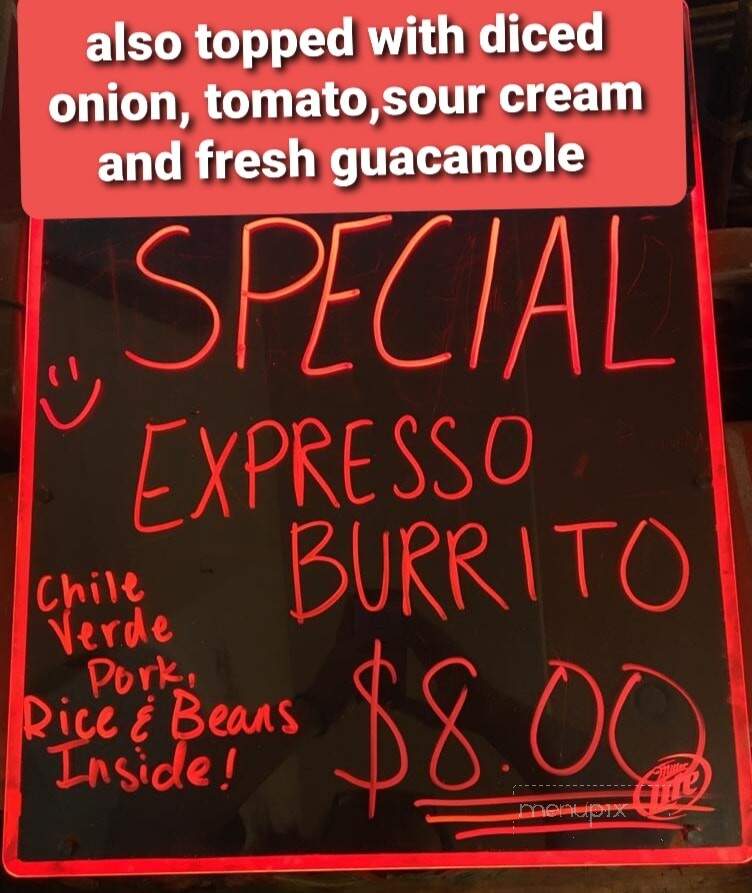 also topped with diced
onion, tomato,sour cream
and fresh guacamole
SPECIAL
EXPRESSO
BURRITO
Chile
Verde
Pork,
Rice & Beans
Inside!
$8.00
Miller
Lite
menupix